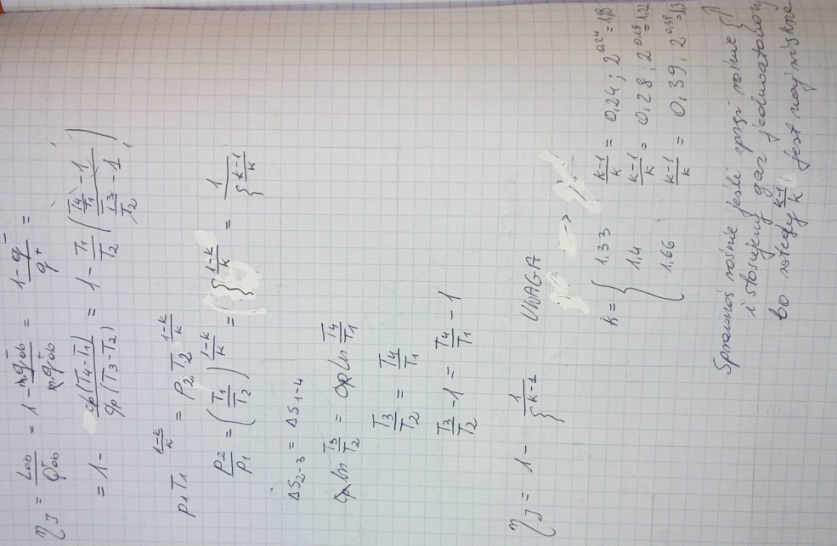 η_J = L_ob / Q_ob = 1 - m q^-_ob / m q^+_ob = 1 - q^- / q^+ =
= 1 - cp(T4-T1) / cp(T3-T2) = 1 - T1/T2 ( (T4/T1 - 1) / (T3/T2 - 1) )
p1 T1^((1-k)/k) = p2 T2^((1-k)/k)
p2/p1 = (T1/T2)^((1-k)/k) = {^((1-k)/k) = 1 / {^((k-1)/k)
ΔS2-3 = ΔS1-4
cp ln T3/T2 = cp ln T4/T1
T3/T2 = T4/T1
T3/T2 - 1 = T4/T1 - 1
η_J = 1 - 1 / {^(k-1) UWAGA
k = { 1,33 → (k-1)/k = 0,24 ; 2^0,24 = 1,18
1,4 (k-1)/k = 0,28 ; 2^0,28 = 1,2
1,66 (k-1)/k = 0,39 ; 2^0,39 = 1,3
Sprawność rośnie jeśli spręż rośnie {↑
i stosujemy gaz jednoatomow
bo wtedy (k-1)/k jest